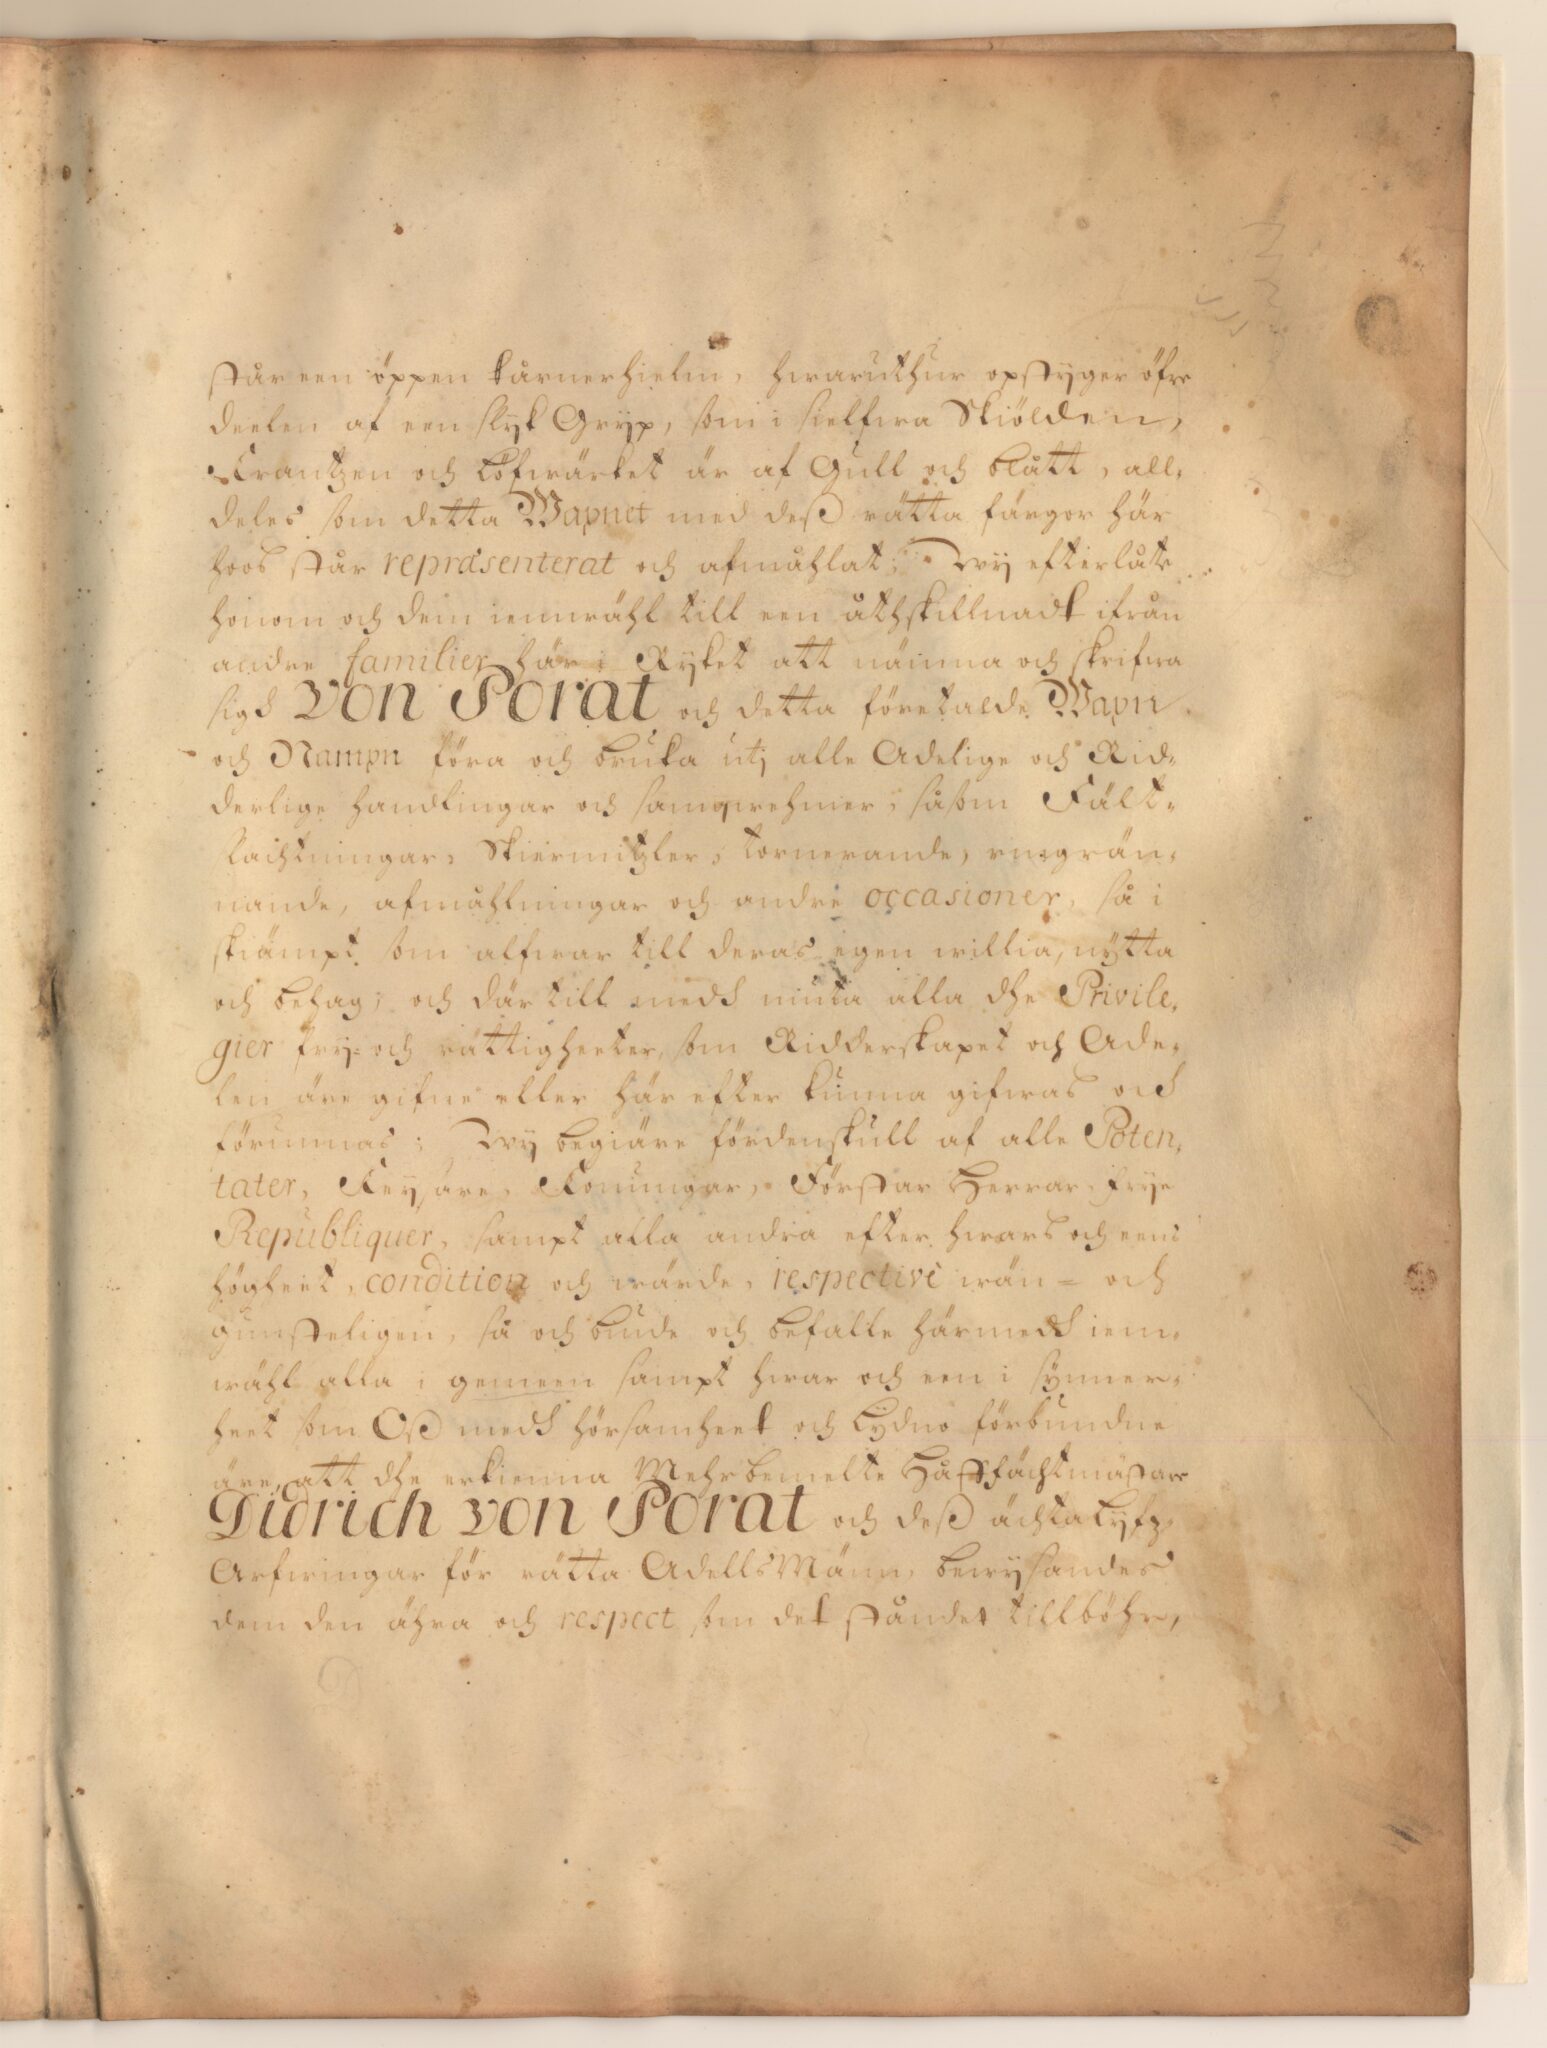 står een öppen turnerhielm, hwaruthur opstyger öfre
deelen af een slyk Gryp, som i sielfwa Skiölden,
Krantzen och Löfwärket är af Gull och blått, all-
deles som detta Wapnet med deß rätta färgor här
hoos står repræsenterat och afmåhlat; Wy efterlåte
honom och dem iemwähl till een åthskillnadt ifrån
andre familier här i Ryket att nämna och skrifwa
sigh von Porat och detta företalde Wapn
och Nampn föra och bruka utj alle Adelige och Rid-
derlige handlingar och samqwehmer, såsom Fält-
slachtningar, Skiermitzler, tornerande, ringrän-
nande, afmåhlningar och andre occasioner, så i
skiämpt som alfwar till deras egen willia, nytta
och behag; och där till medh niuta alla dhe Privile-
gier fry- och rättigheeter, som Ridderskapet och Ade-
len äre gifne eller här efter kunna gifwas och
förunnas; Wy begiäre fördenskull af alle Poten-
tater, Keysare, Konungar, Förstar Herrar, frye
Republiquer, sampt alla andra efter hwars och eens
högheet, condition och wärde, respective wän- och
gunsteligen, så och biude och befalle härmedh iem-
wähl alla i gemeen sampt hwar och een i synner-
heet som Oß medh hörsamheet och Lydno förbundne
äre, att dhe erkienna Mehrbemelte Håffächtmästare
Didrich von Porat och deß ächta Lyfz-
Arfwingar för rätta AdellsMänn, bewysandes
dem den ähra och respect som det ståndet tillböhr,